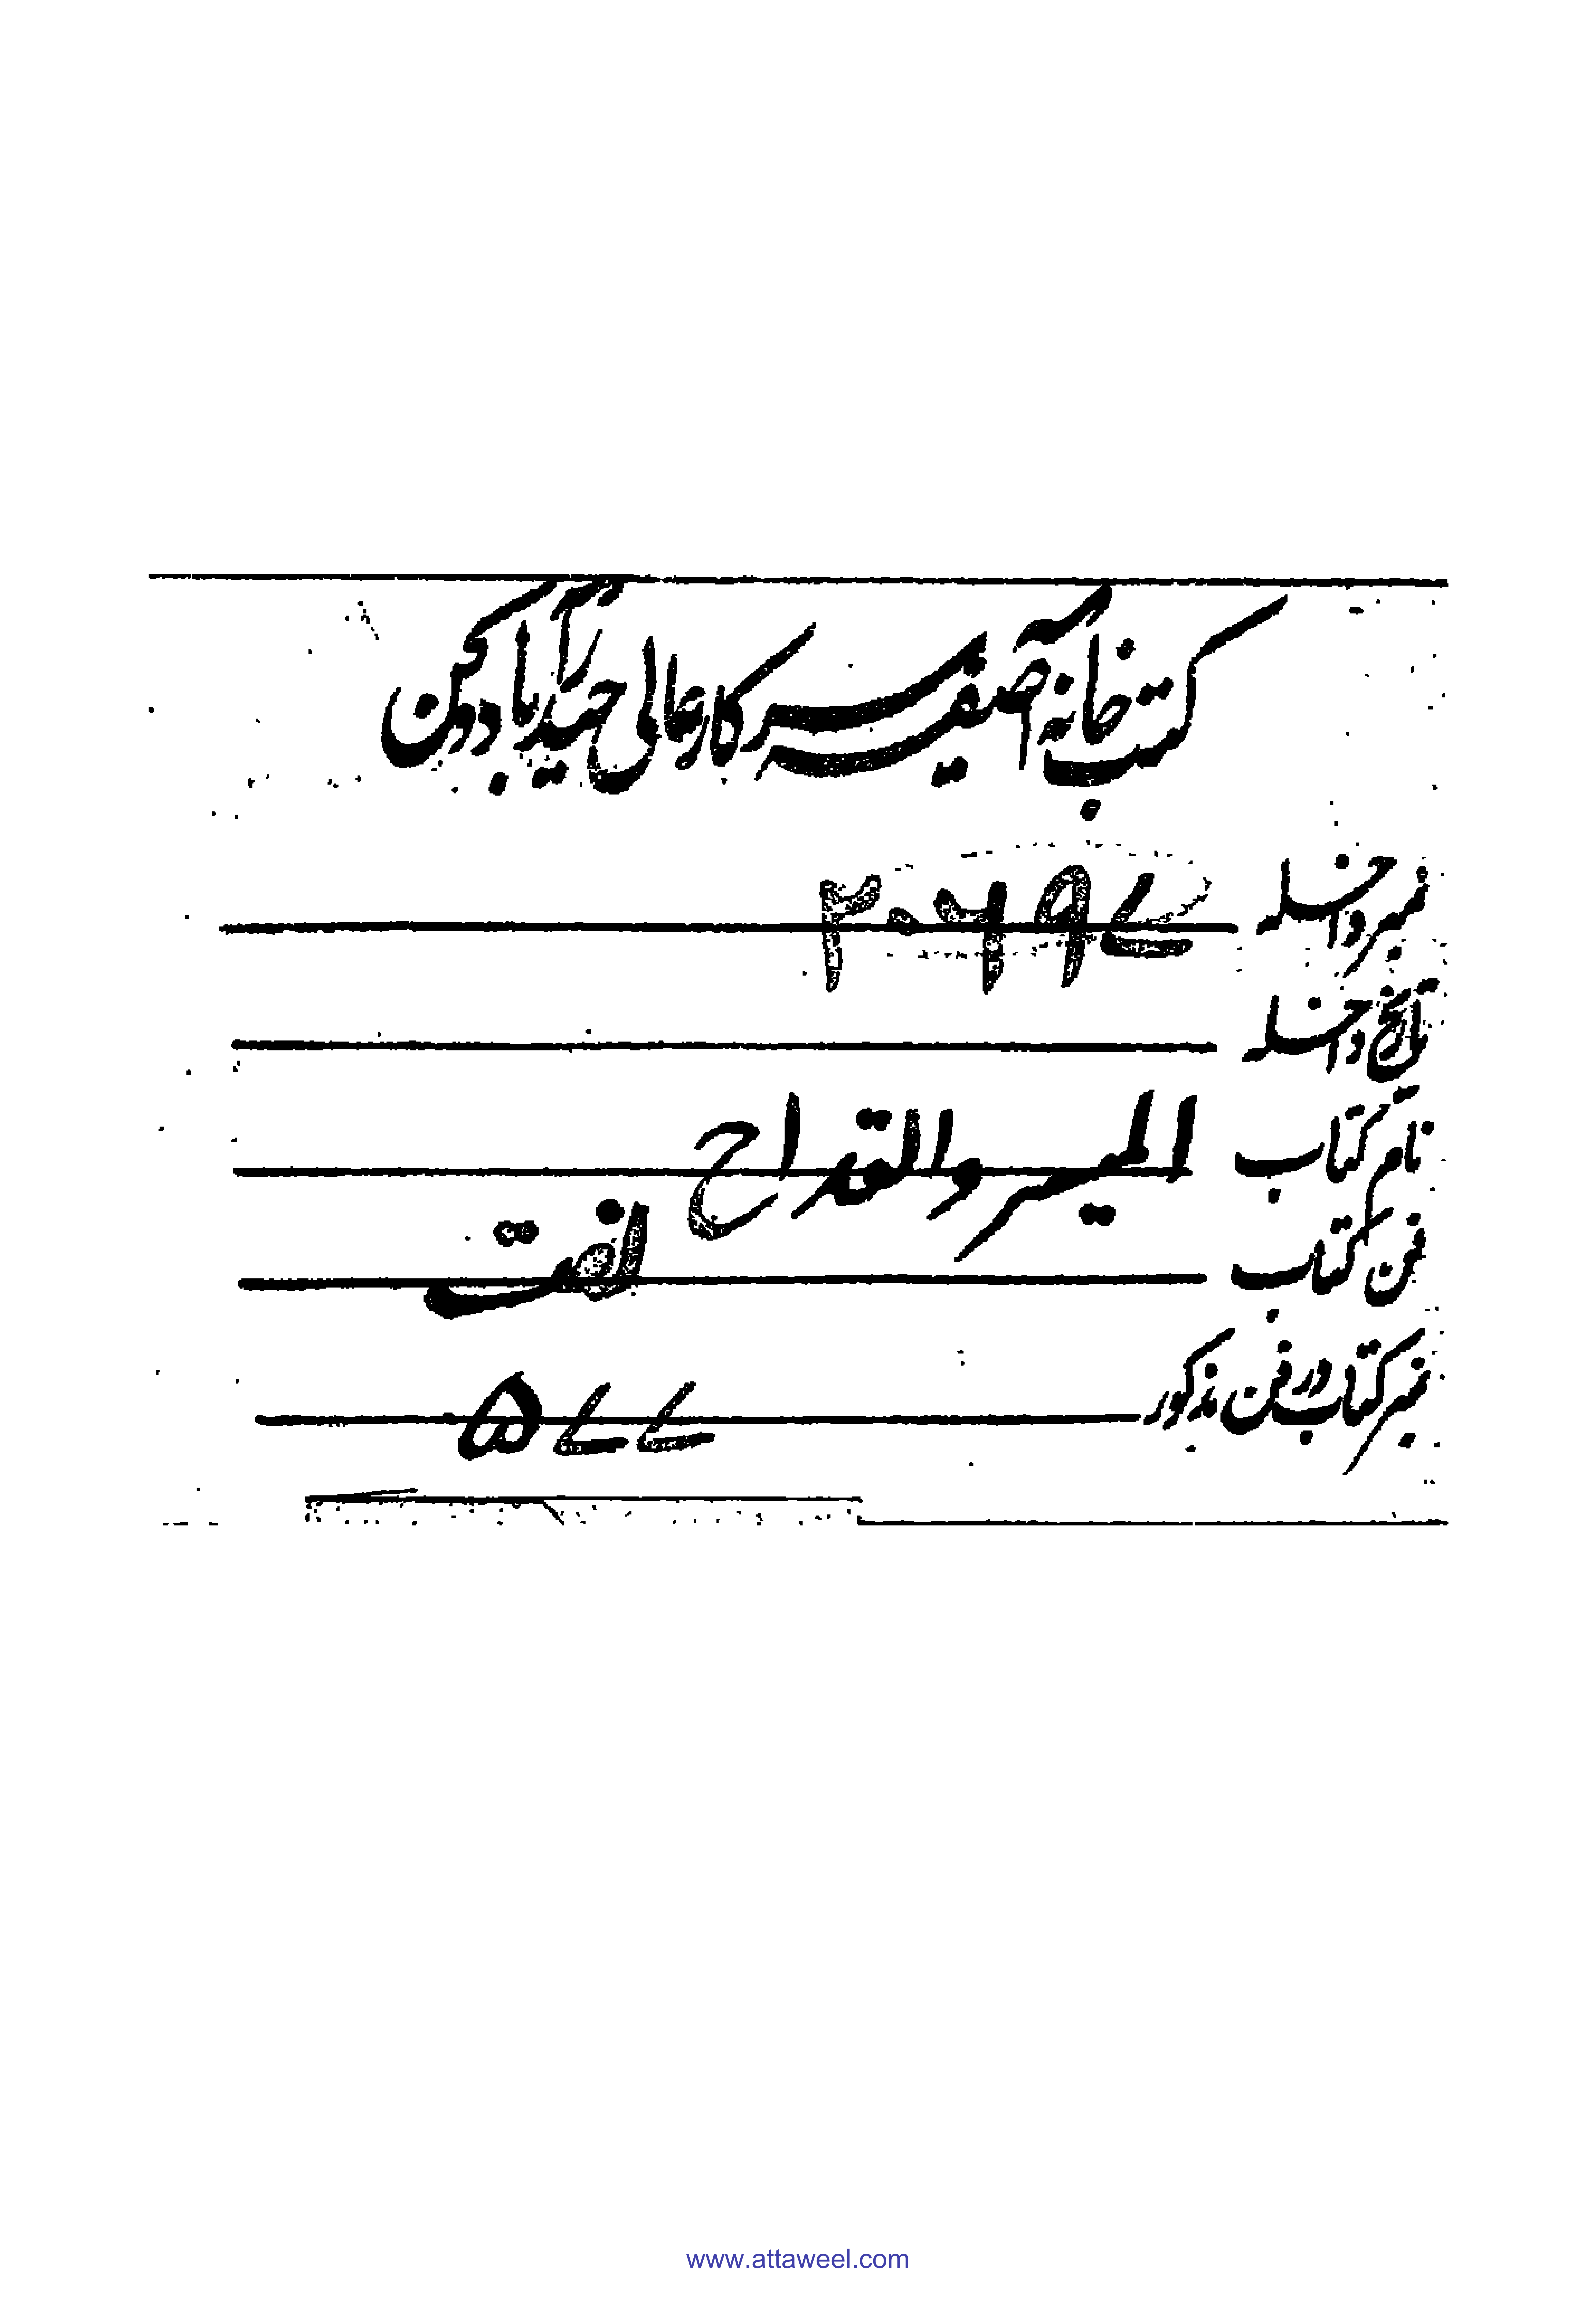 کتب خانہ آصفیہ سرکار عالی حیدرآباد دکن
نمبر داخلہ ۲۰۶۹۷
تاریخ داخلہ
نام کتاب المیسر والقداح
فن کتاب لغت
نمبر کتاب در فن مذکور ۵۷۷
www.attaweel.com